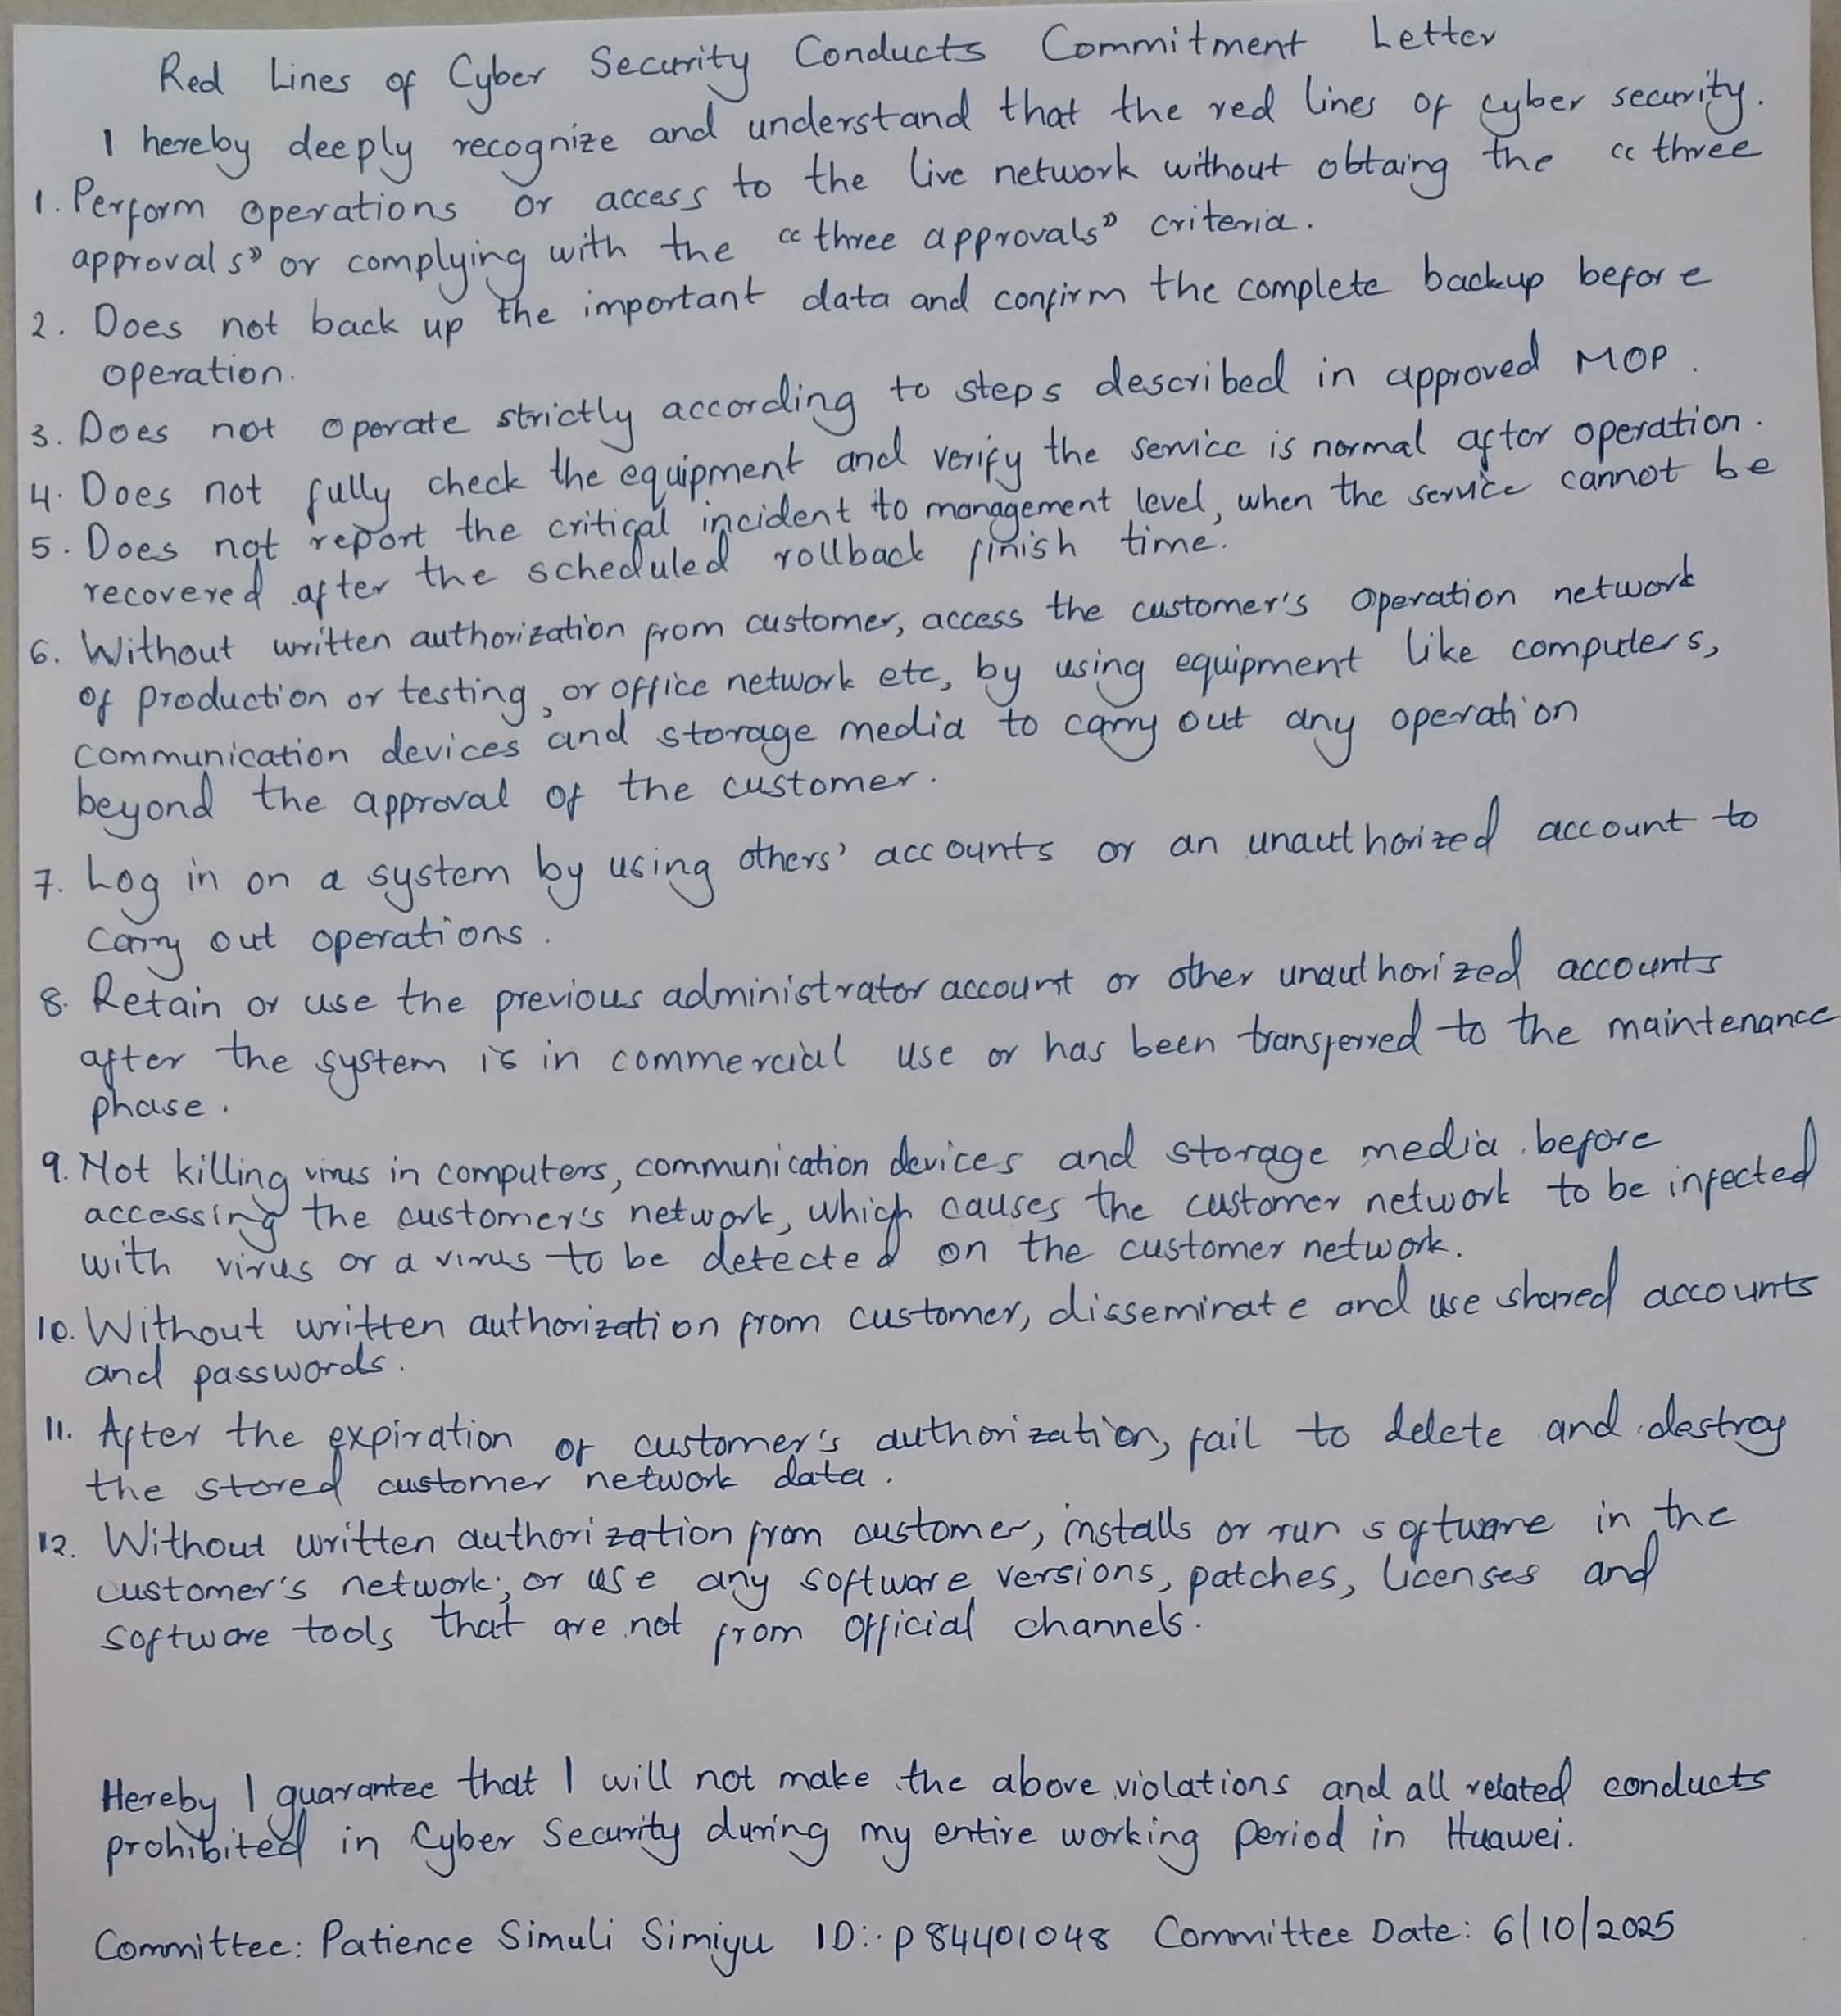 Red Lines of Cyber Security Conducts Commitment Letter
I hereby deeply recognize and understand that the red lines of cyber security.
1. Perform operations or access to the live network without obtaing the “three
approvals” or complying with the “three approvals” criteria.
2. Does not back up the important data and confirm the complete backup before
operation.
3. Does not operate strictly according to steps described in approved MOP.
4. Does not fully check the equipment and verify the service is normal after operation.
5. Does not report the critical incident to management level, when the service cannot be
recovered after the scheduled rollback finish time.
6. Without written authorization from customer, access the customer's operation network
of production or testing, or office network etc, by using equipment like computers,
communication devices and storage media to carry out any operation
beyond the approval of the customer.
7. Log in on a system by using others' accounts or an unauthorized account to
carry out operations.
8. Retain or use the previous administrator account or other unauthorized accounts
after the system is in commercial use or has been transferred to the maintenance
phase.
9. Not killing virus in computers, communication devices and storage media before
accessing the customer's network, which causes the customer network to be infected
with virus or a virus to be detected on the customer network.
10. Without written authorization from customer, disseminate and use shared accounts
and passwords.
11. After the expiration of customer's authorization, fail to delete and destroy
the stored customer network data.
12. Without written authorization from customer, installs or run software in the
customer's network; or use any software versions, patches, licenses and
software tools that are not from official channels.
Hereby I guarantee that I will not make the above violations and all related conducts
prohibited in Cyber Security during my entire working period in Huawei.
Committee: Patience Simuli Simiyu ID: P84401048 Committee Date: 6/10/2025